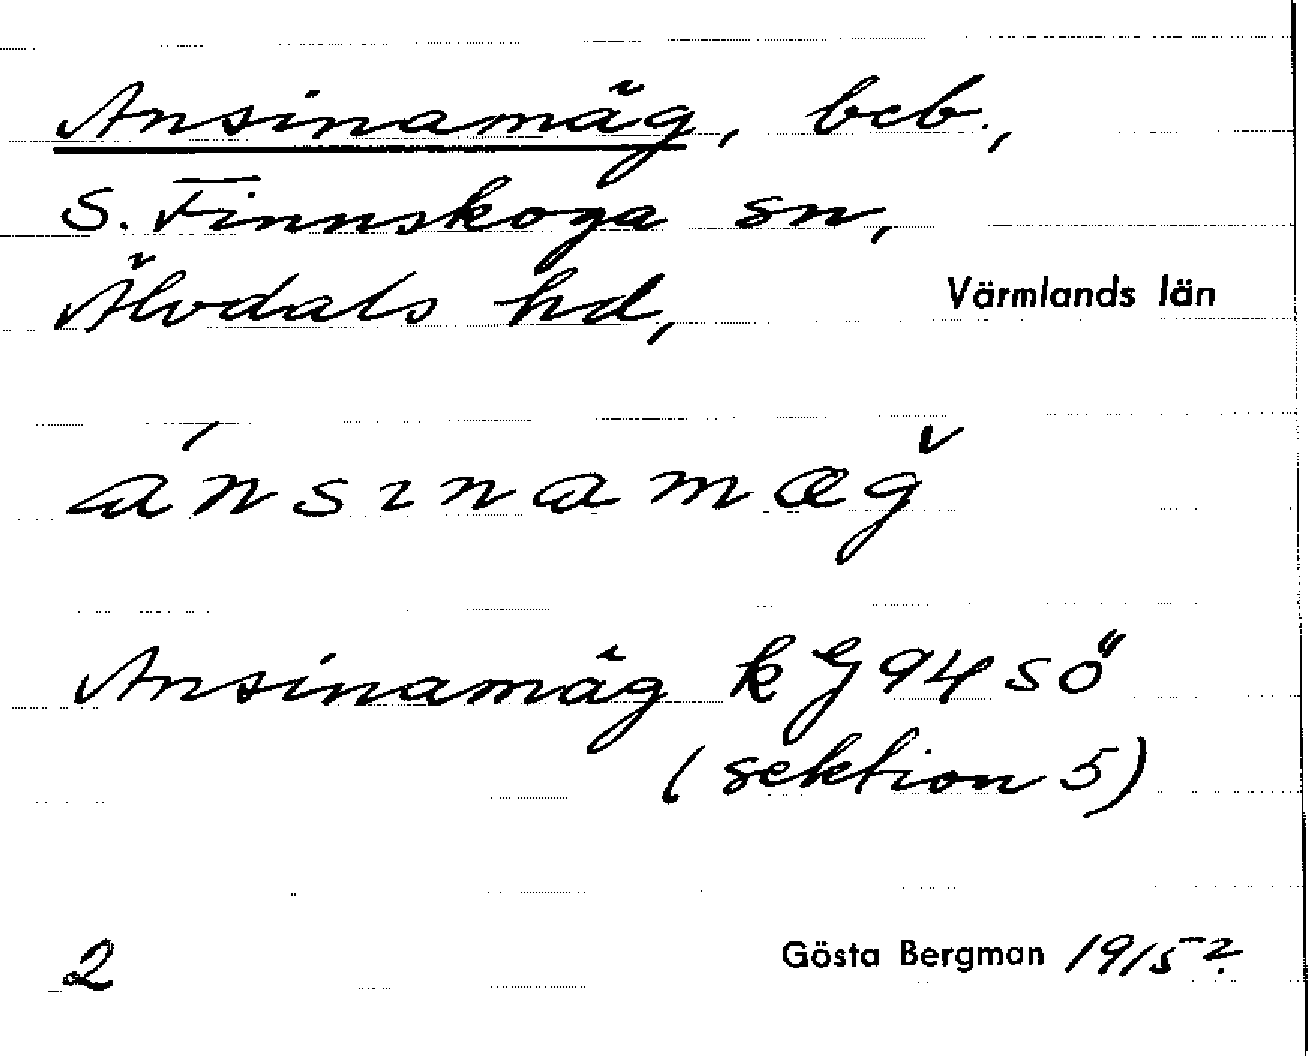 Ansinamäg, beb.,
S. Finnskoga sn,
Älvdals hd,
Värmlands län
ánsınamæğ
Ansinamäg kG94 SÖ
(sektion 5)
2
Gösta Bergman 1915?